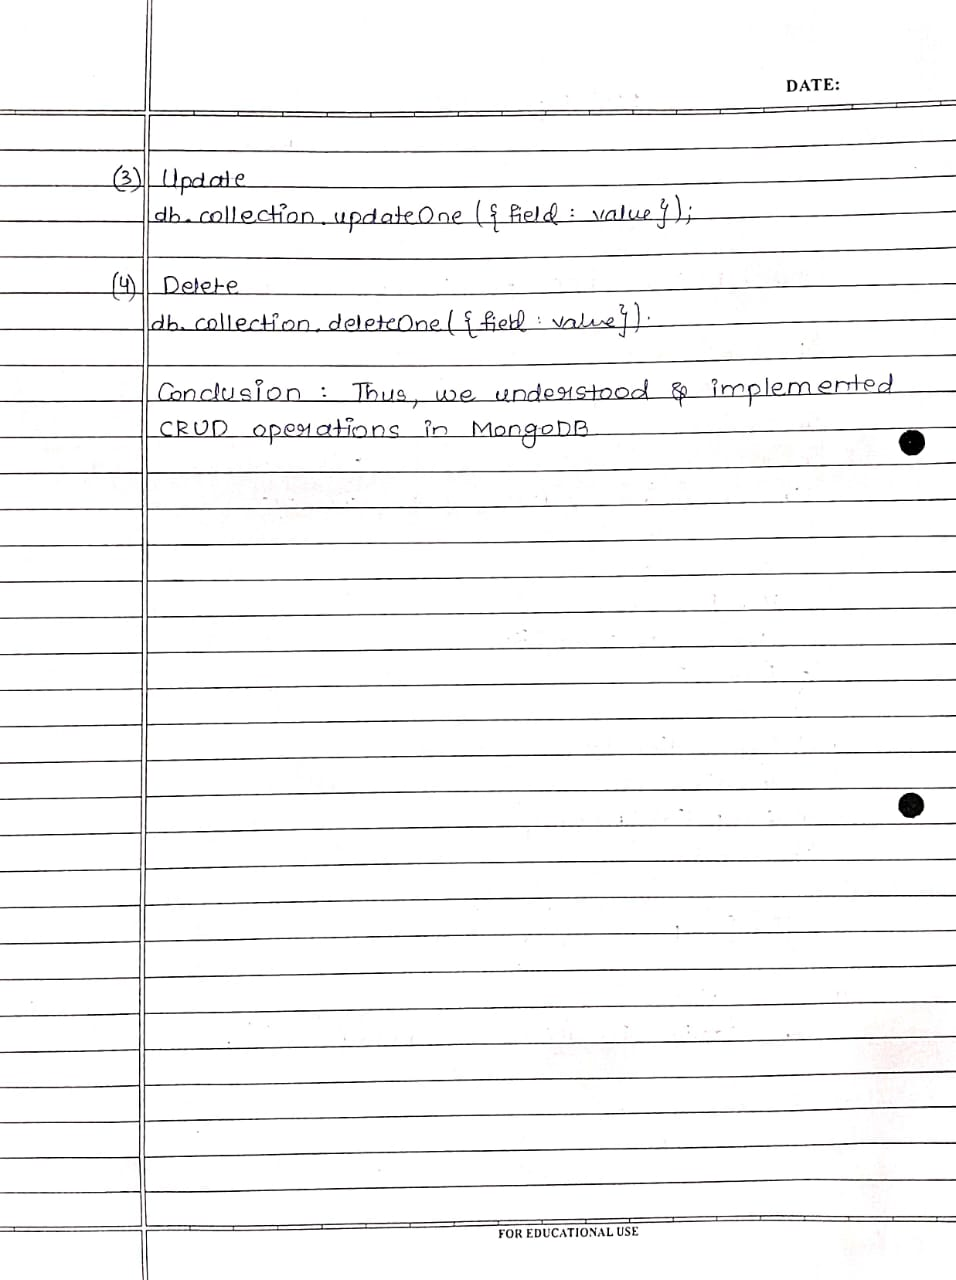 DATE:
(3) Update
db. collection. updateOne ({ field : value });
(4) Delete
db. collection. deleteOne ({ field : value }).
Conclusion : Thus, we understood & implemented
CRUD operations in MongoDB
FOR EDUCATIONAL USE